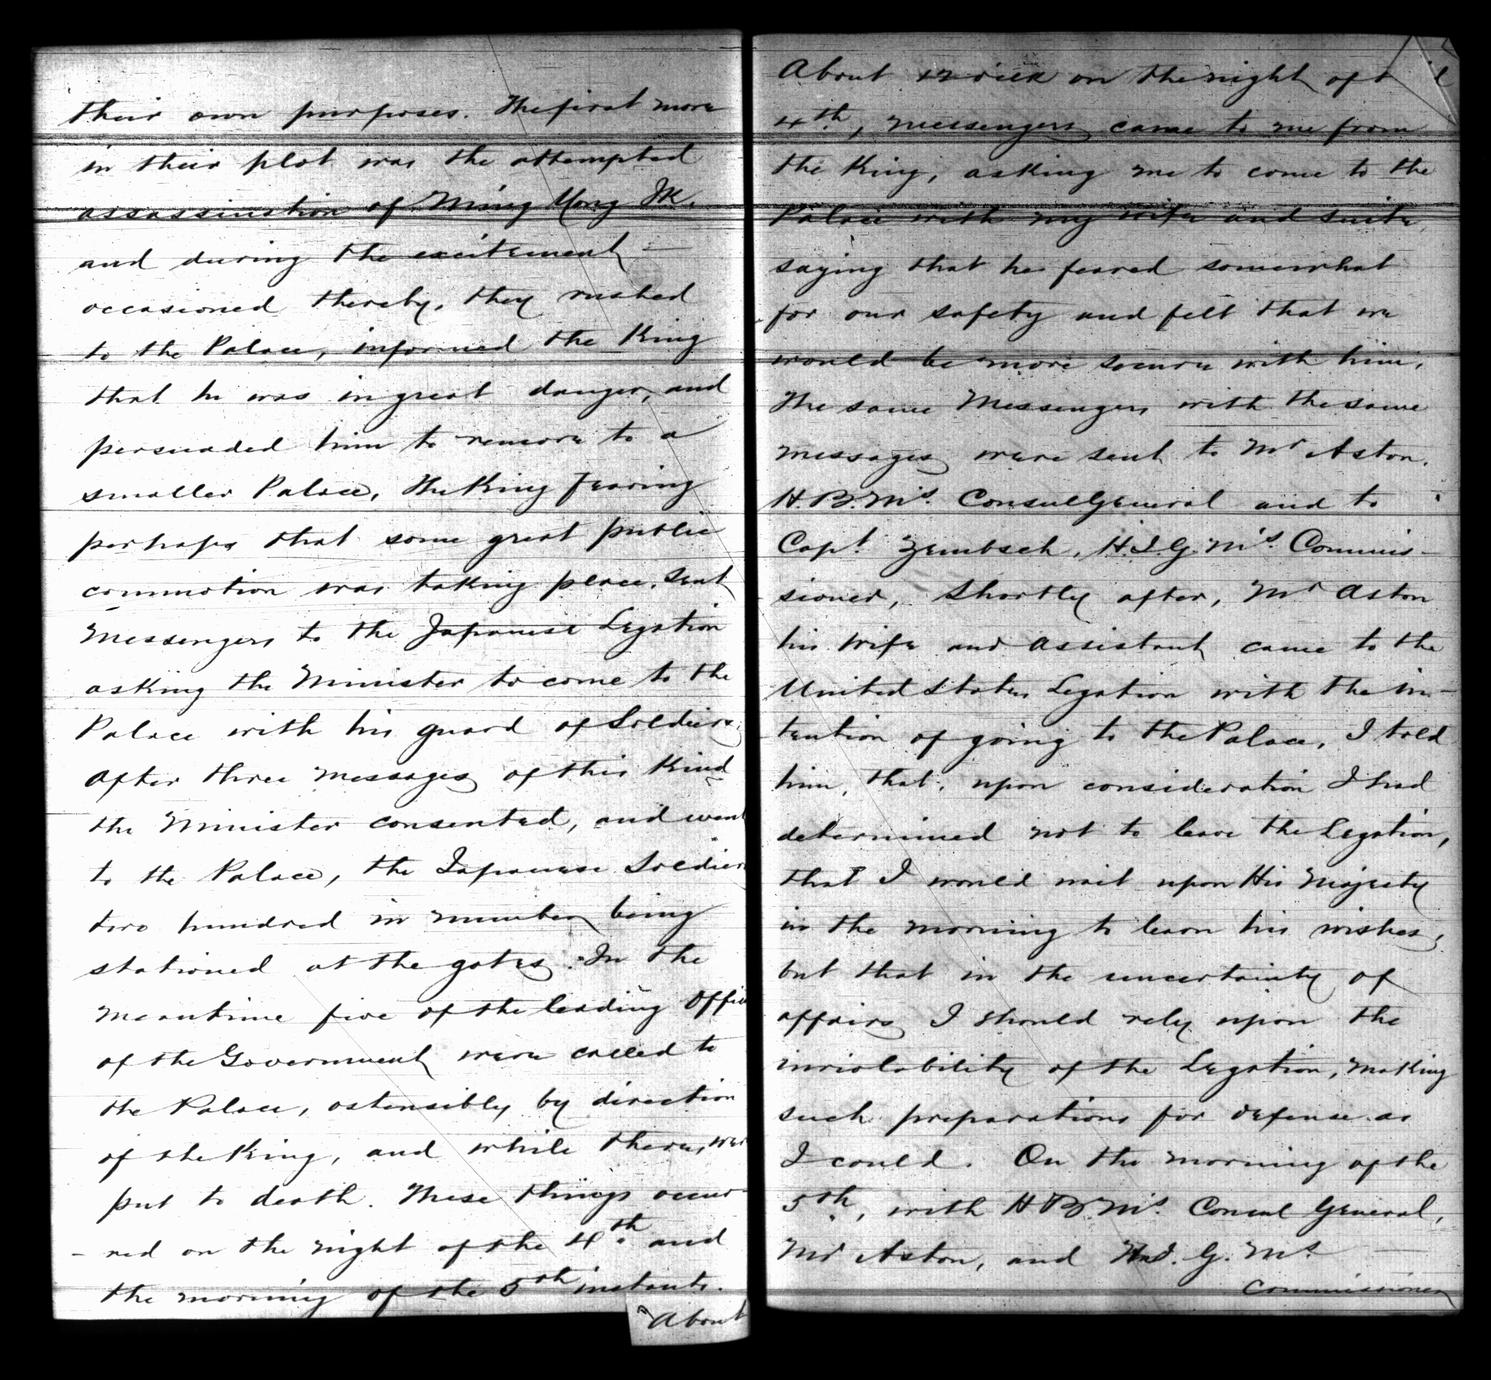 their own purposes. The first move
in their plot was the attempted
assassination of Ming Yong Ik.
and during the excitement
occasioned thereby, they rushed
to the Palace, informed the King
that he was in great danger, and
persuaded him to remove to a
smaller Palace, The King fearing
perhaps that some great public
commotion was taking place, sent
messengers to the Japanese Legation
asking the Minister to come to the
Palace with his guard of Soldiers,
after three messages of this kind
the Minister consented, and went
to the Palace, the Japanese Soldiers
two hundred in number being
stationed at the gates. In the
meantime five of the leading Offi
of the Government were called to
the Palace, ostensibly by direction
of the King, and while there, wer
put to death. These things occur-
-red on the night of the 4th and
the morning of the 5th instants.
About
About on the night of
4th, messengers came to me from
the King, asking me to come to the
Palace with my wife and suite,
saying that he feared somewhat
for our safety and felt that we
would be more secure with him,
The same Messengers with the same
messages were sent to Mr Aston,
H.B.M's. Consul General and to
Capt. Zembsch, H.I.G.M's. Commis-
sioner, Shortly after, Mr Aston
his wife and assistant came to the
United States Legation with the in-
tention of going to the Palace, I told
him, that, upon consideration I had
determined not to leave the Legation,
that I would wait upon His Majesty
in the morning to learn his wishes,
but that in the uncertainty of
affairs I should rely upon the
inviolability of the Legation, making
such preparations for defense as
I could. On the morning of the
5th, with H B M's Consul General,
Mr Aston, and H.I.G.M's
Commissioner